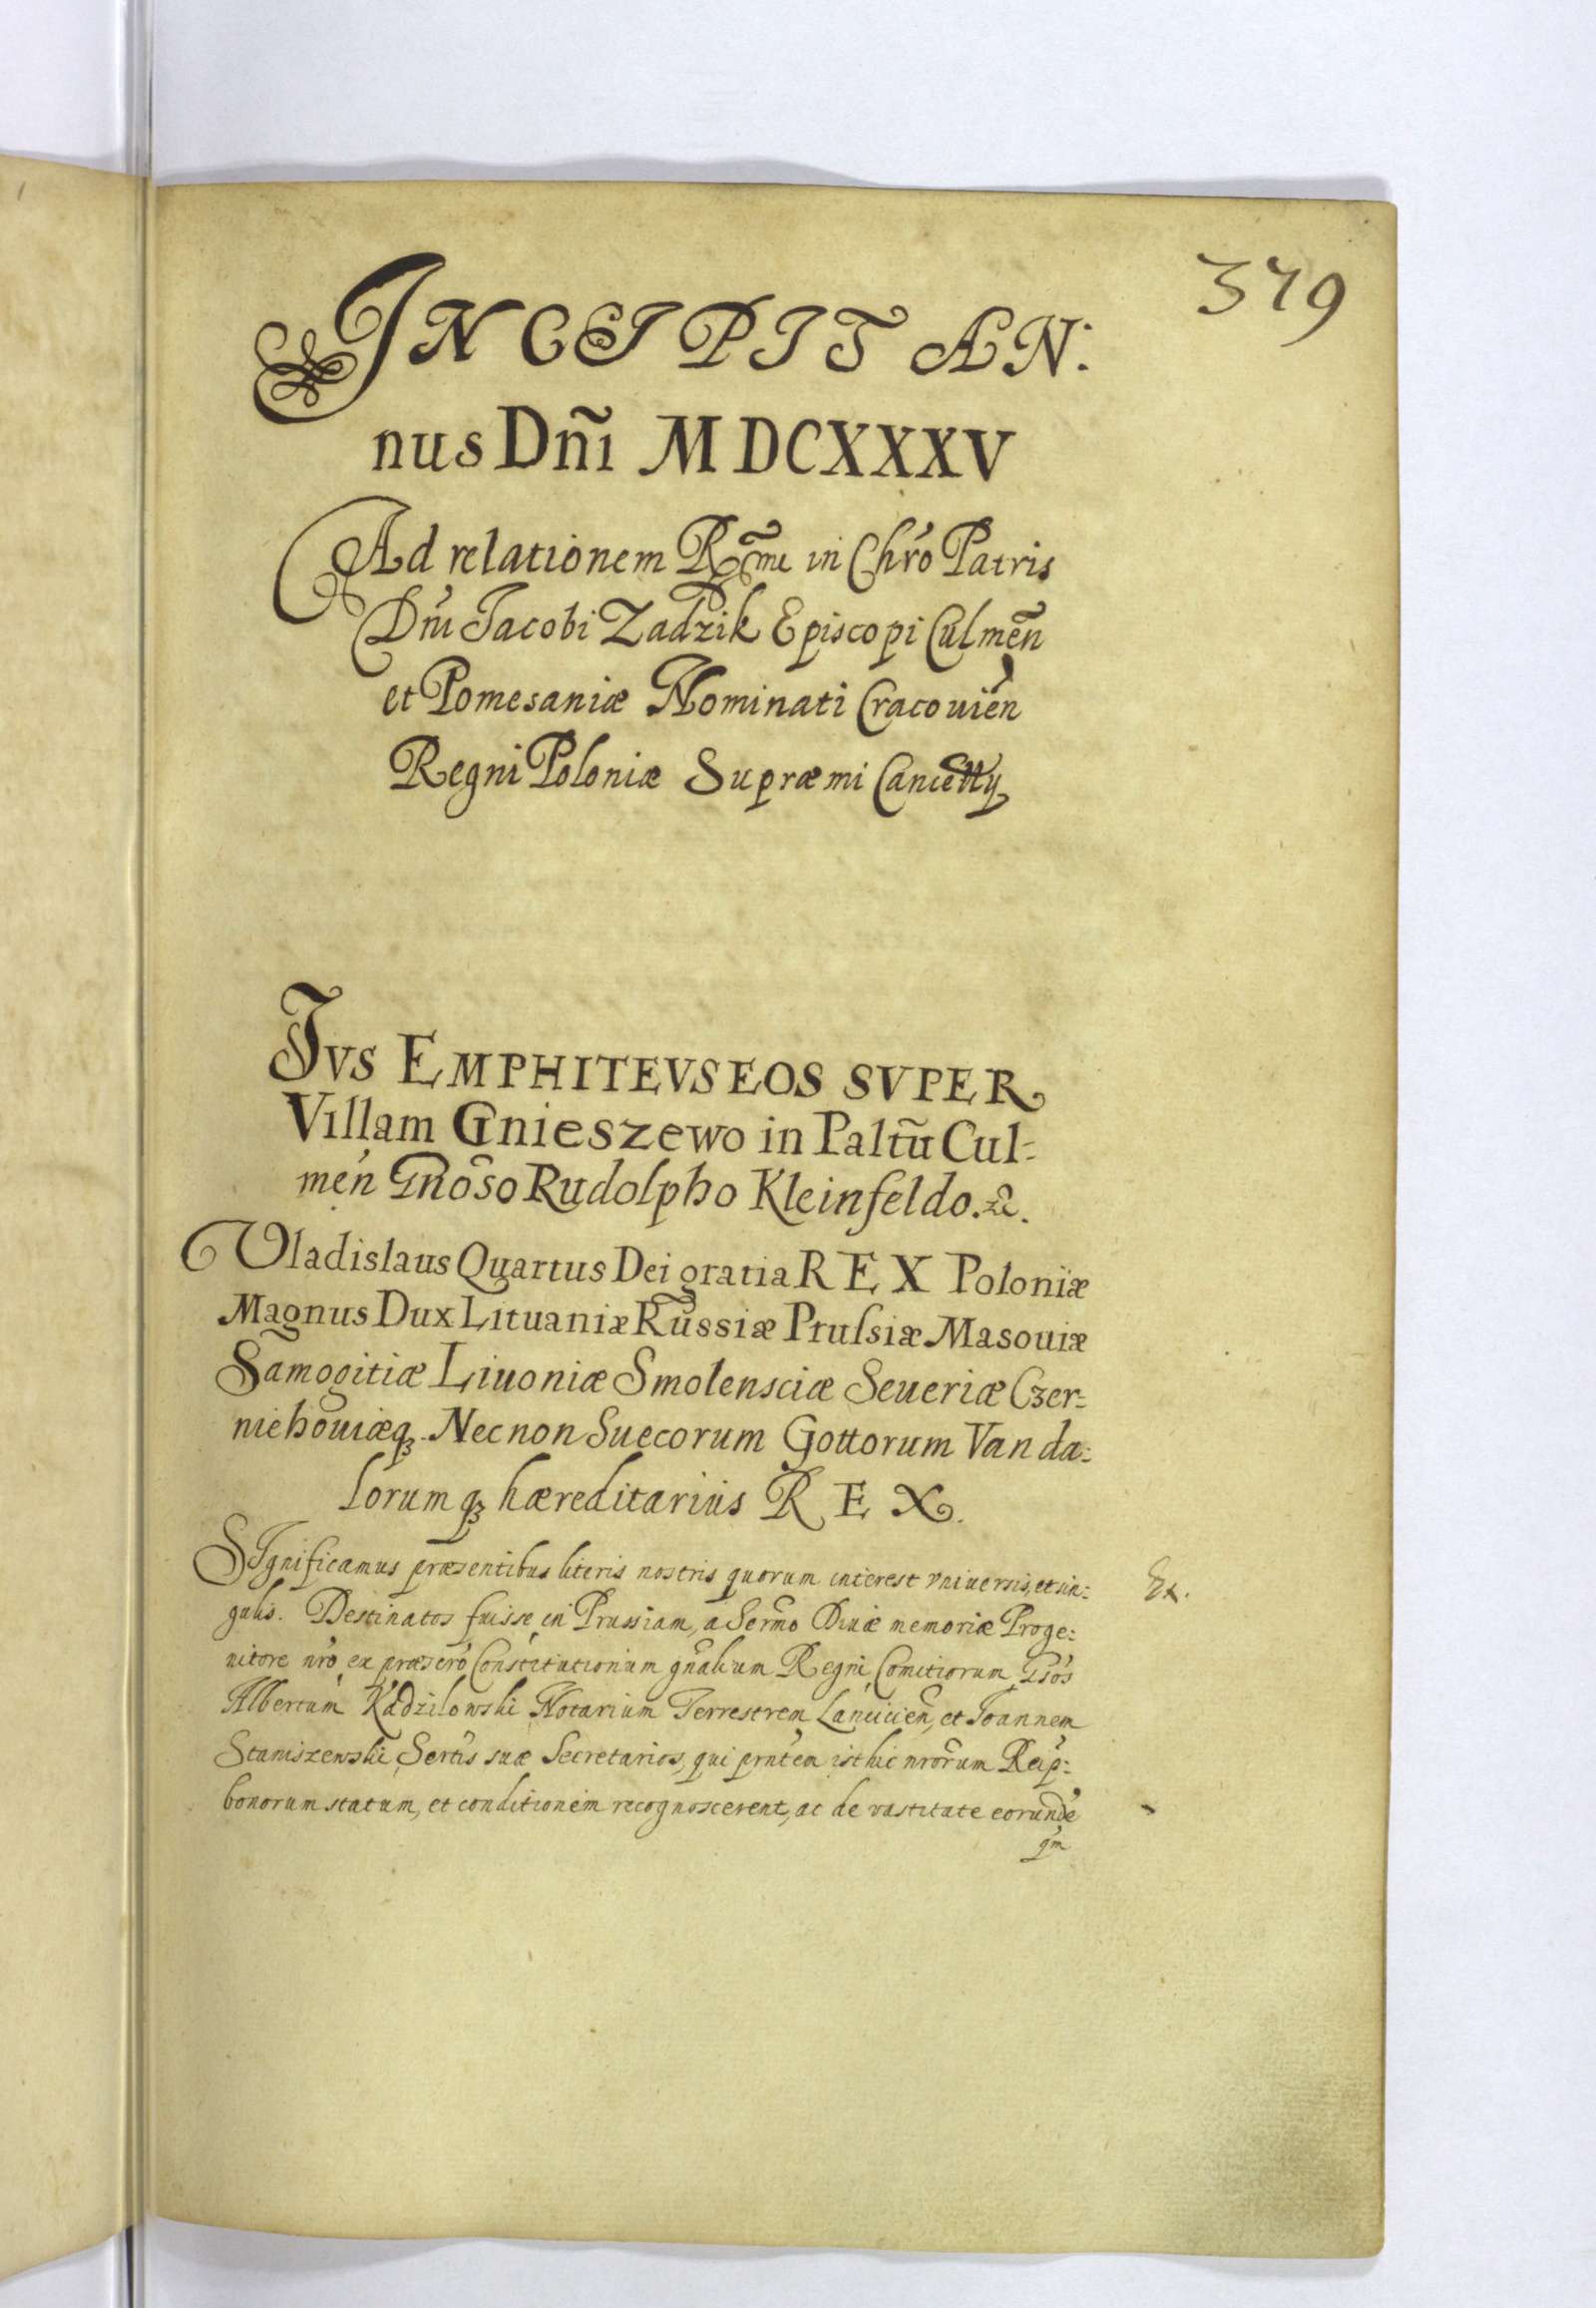 379
INCIPIT AN:
nus Dñi MDCXXXV
Ad relationem Rmi in Chro Patris
Dni Jacobi Zadzik Episcopi Culmen̄
et Pomesaniæ Nominati Cracouien̄
Regni Poloniæ Supræmi Cancellṙy
Jvs Emphitevseos svper
Villam Gnieszewo in Paltū Cul-
men̄ Gnoso Rudolpho Kleinfeldo. &.
Vladislaus Quartus Dei gratia REX Poloniæ
Magnus Dux Lituaniæ Russiæ Prussiæ Masouiæ
Samogitiæ Liuoniæ Smolensciæ Seueriæ Czer=
niehouiæq3. Nec non Suecorum Gottorum Vanda:
lorumq3 hæreditarius REX.
SIgnificamus præsentibus literis nostris quorum interest vniuersis, et sin:
gulis. Destinatos fuisse in Prussiam, a Sermo Diuæ memoriæ Proge:
nitore nro ex præscro Constitutionum gnalium Regni Comitiorum Gsos
Albertum Kadzilowski Notarium Terrestrem Lancicien̄, et Joannem
Staniszewski Sertis suæ Secretarios, qui prntem isthic nrorum Reip:
bonorum statum, et conditionem recognoscerent, ac de vastitate eorundē
qm
Ex.